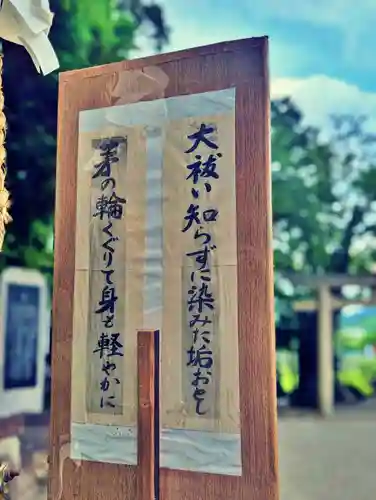 大祓い知らずに染みた垢おとし
茅の輪くぐりて身も軽やかに